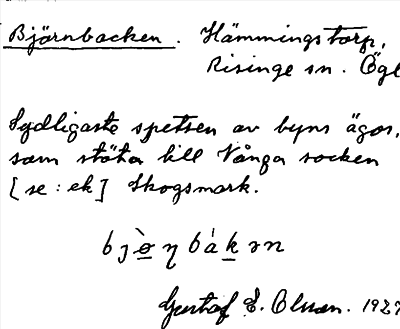 Björnbacken. Hämmingstorp,
Risinge sn. Ögl
Sydligaste spetsen av byns ägor,
som stöta till Vånga socken
[se: ek] Skogsmark.
Gustaf E. Olsson. 1929